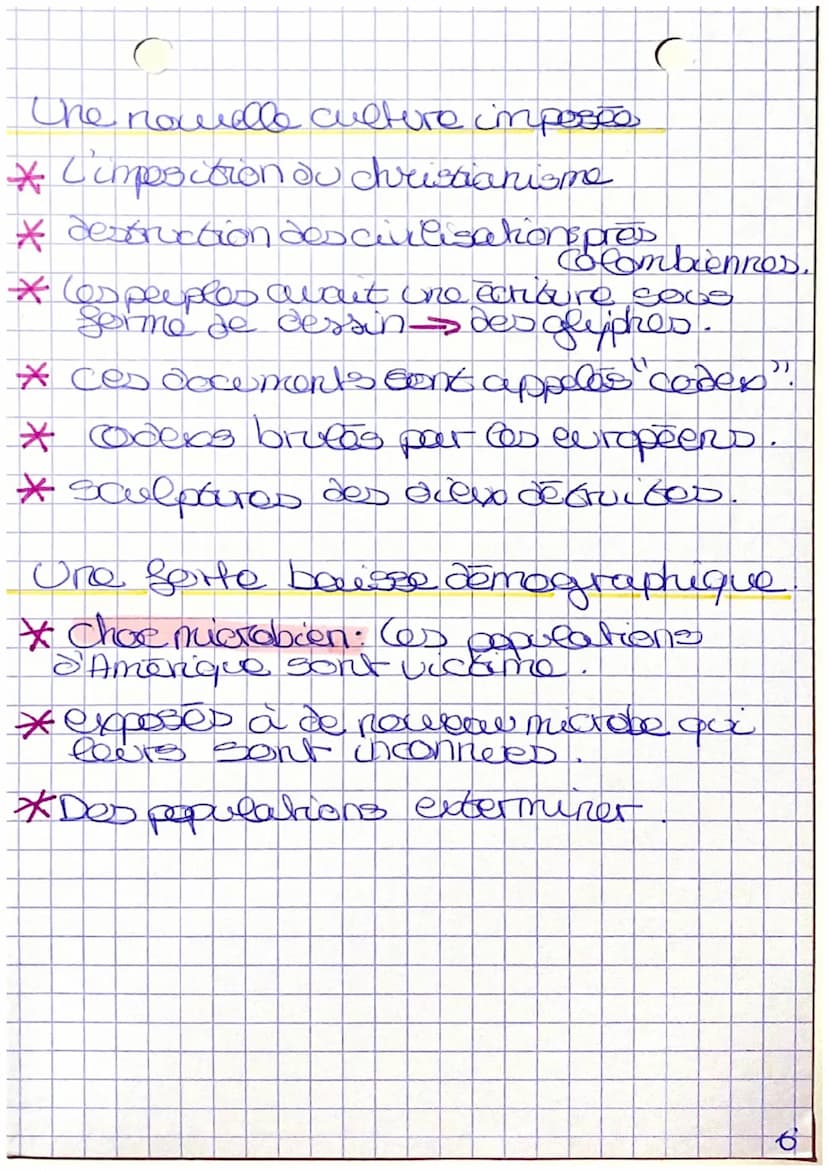 Une nouvelle culture imposée
* L'imposition du christianisme
* destruction des civilisations près
colombiennes.
* les peuples avait une écriture sous
forme de dessin → des glyphes.
* ces documents sont appelés "codex".
* codexs brulés par les européens.
* sculptures des dieux détruites.
Une forte baisse démographique.
* Choc microbien: les populations
d'Amérique sont victime.
* exposés à de nouveau microbe qui
leurs sont inconnees.
* Des populations exterminer.
6